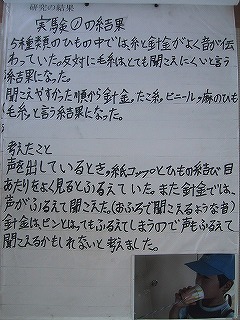 研究の結果
実験①の結果
5種類のひもの中では、糸と針金がよく音が伝
わっていた。反対に毛糸はとても聞こえにくいと言う
結果になった。
聞こえやすかった順から針金、たこ糸、ビニール、麻のひも
毛糸、と言う結果になった。
考えたこと
声を出しているとき、紙コップとひもの結び目
あたりをよく見るとふるえていた。また針金では、
声がふるえて聞こえた。(おふろで聞こえるような音)
針金は、ピンとはってもふるえてしまうので声もふるえて
聞こえるかもしれないと考えました。